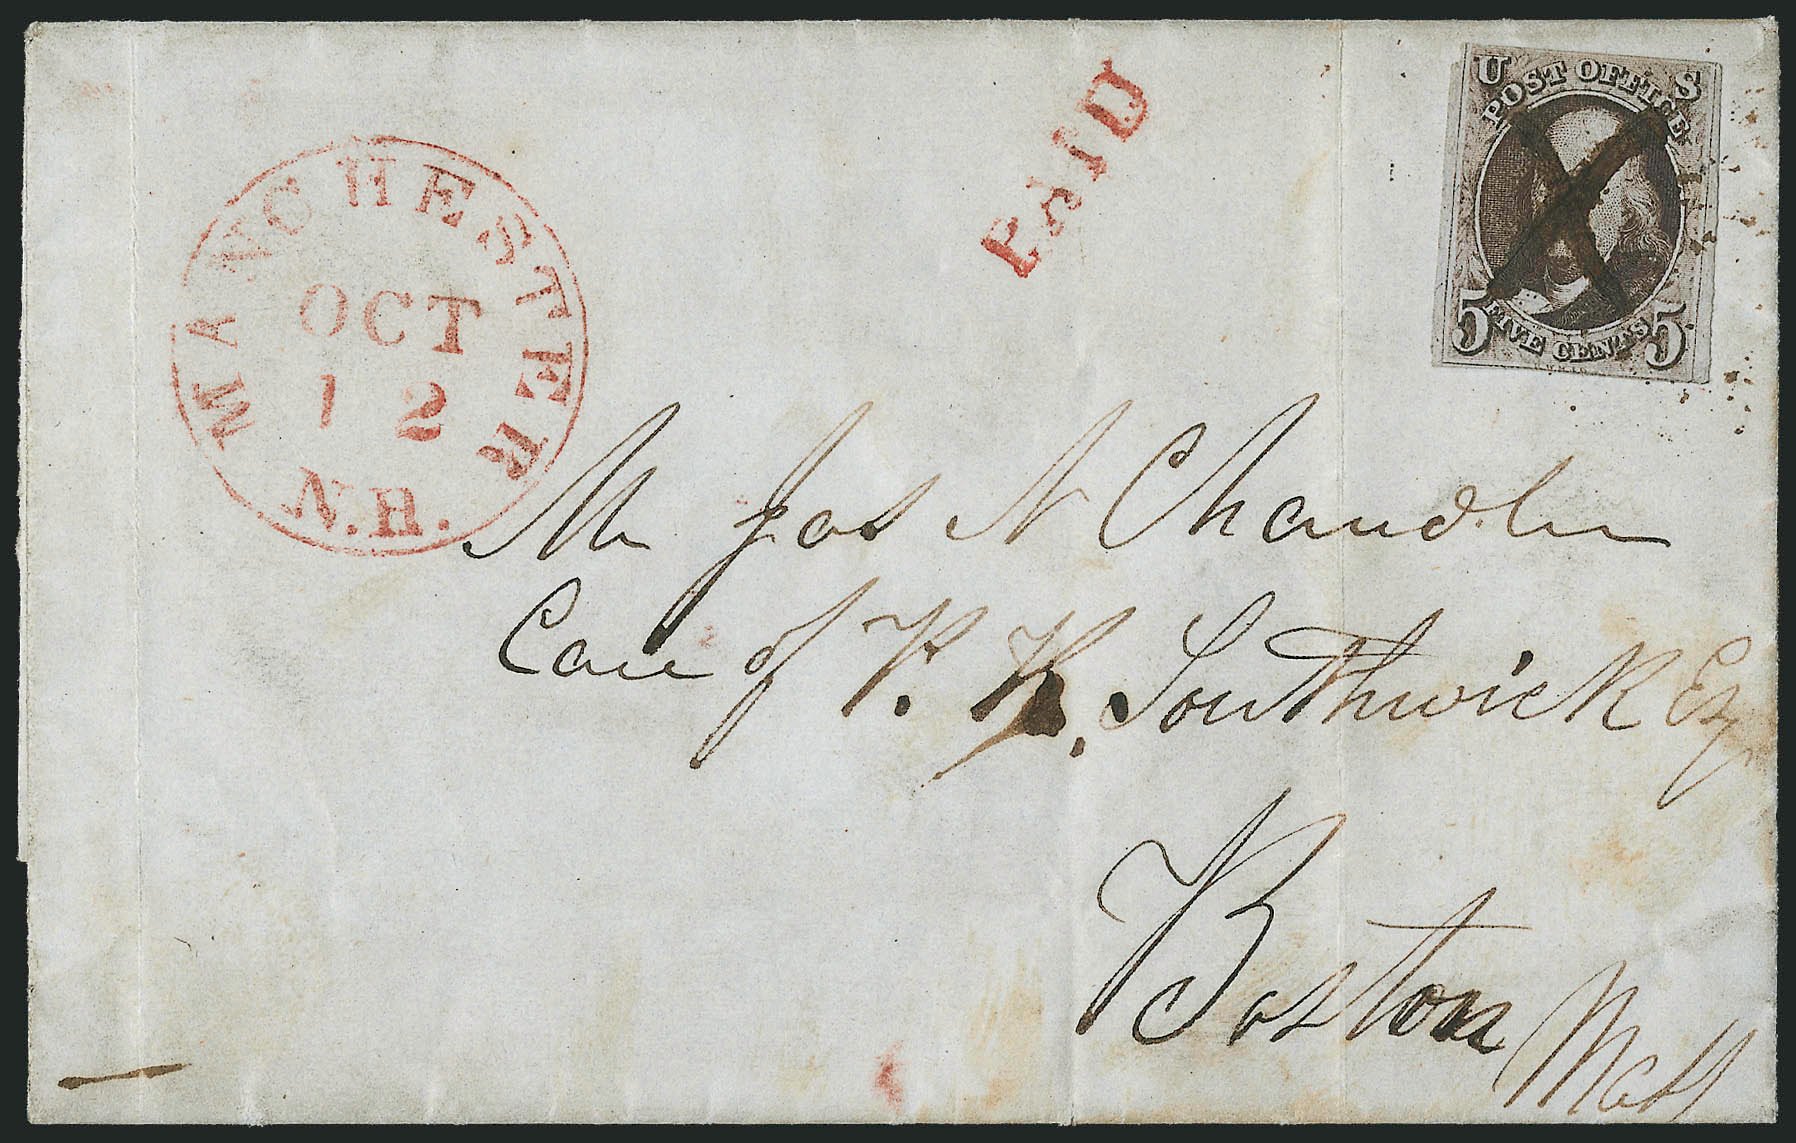 MANCHESTER
OCT
12
N.H.
PAID
U S
POST OFFICE
5 FIVE CENTS 5
Mr Jas N Chandler
Care of P. Southwick Esq
Boston Mass